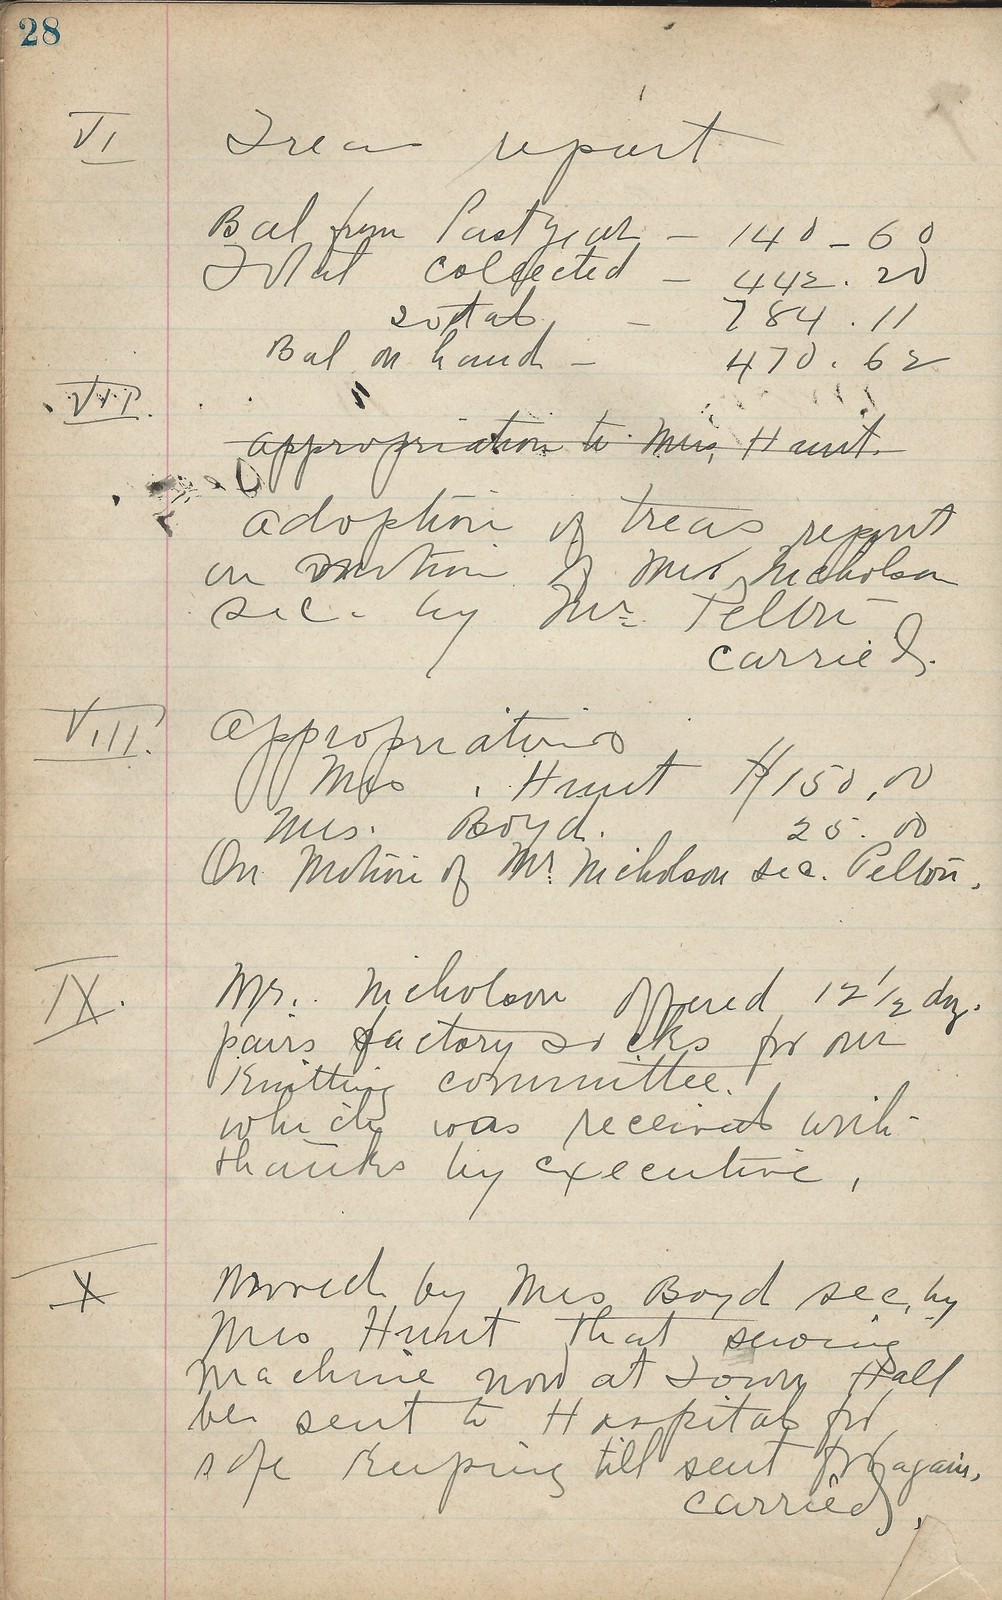 28
VI Treas report
Bal from Past year - 140-60
Total collected - 442.20
Total - 784.11
Bal on hand - 470.62
VII.
appropriation to Mrs, Hunt.
adoption of treas report
on motion of Mr Nicholson
sec. by Mr. Pelton
carried.
VIII. appropriations
Mrs. Hunt $150.00
Mrs. Boyd. 25.00
On Motion of Mr. Nicholson sec. Pelton.
IX. Mr. Nicholson offered 12 1/2 doz.
pairs factory socks for our
Knitting committee.
which was received with
thanks by executive.
X Moved by Mrs Boyd sec. by
Mrs Hunt that sewing
machine now at Town Hall
be sent to Hospital for
safe keeping till sent for again.
carried.